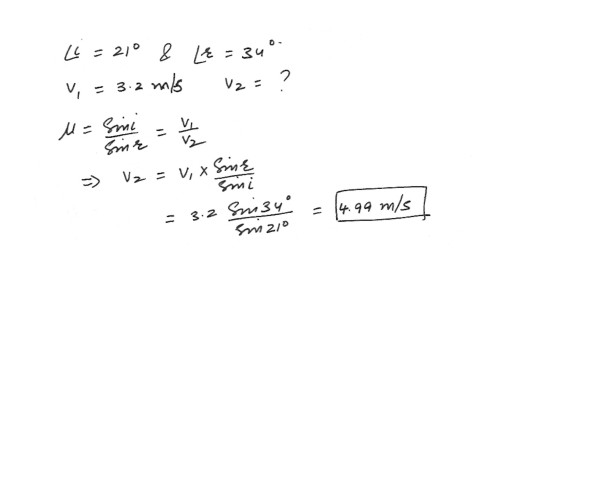 ∠i = 21° & ∠r = 34°.
V₁ = 3.2 m/s V₂ = ?
μ = Sin i / Sin r = V₁ / V₂
⇒ V₂ = V₁ × Sin r / Sin i
= 3.2 Sin 34° / Sin 21° = 4.99 m/s